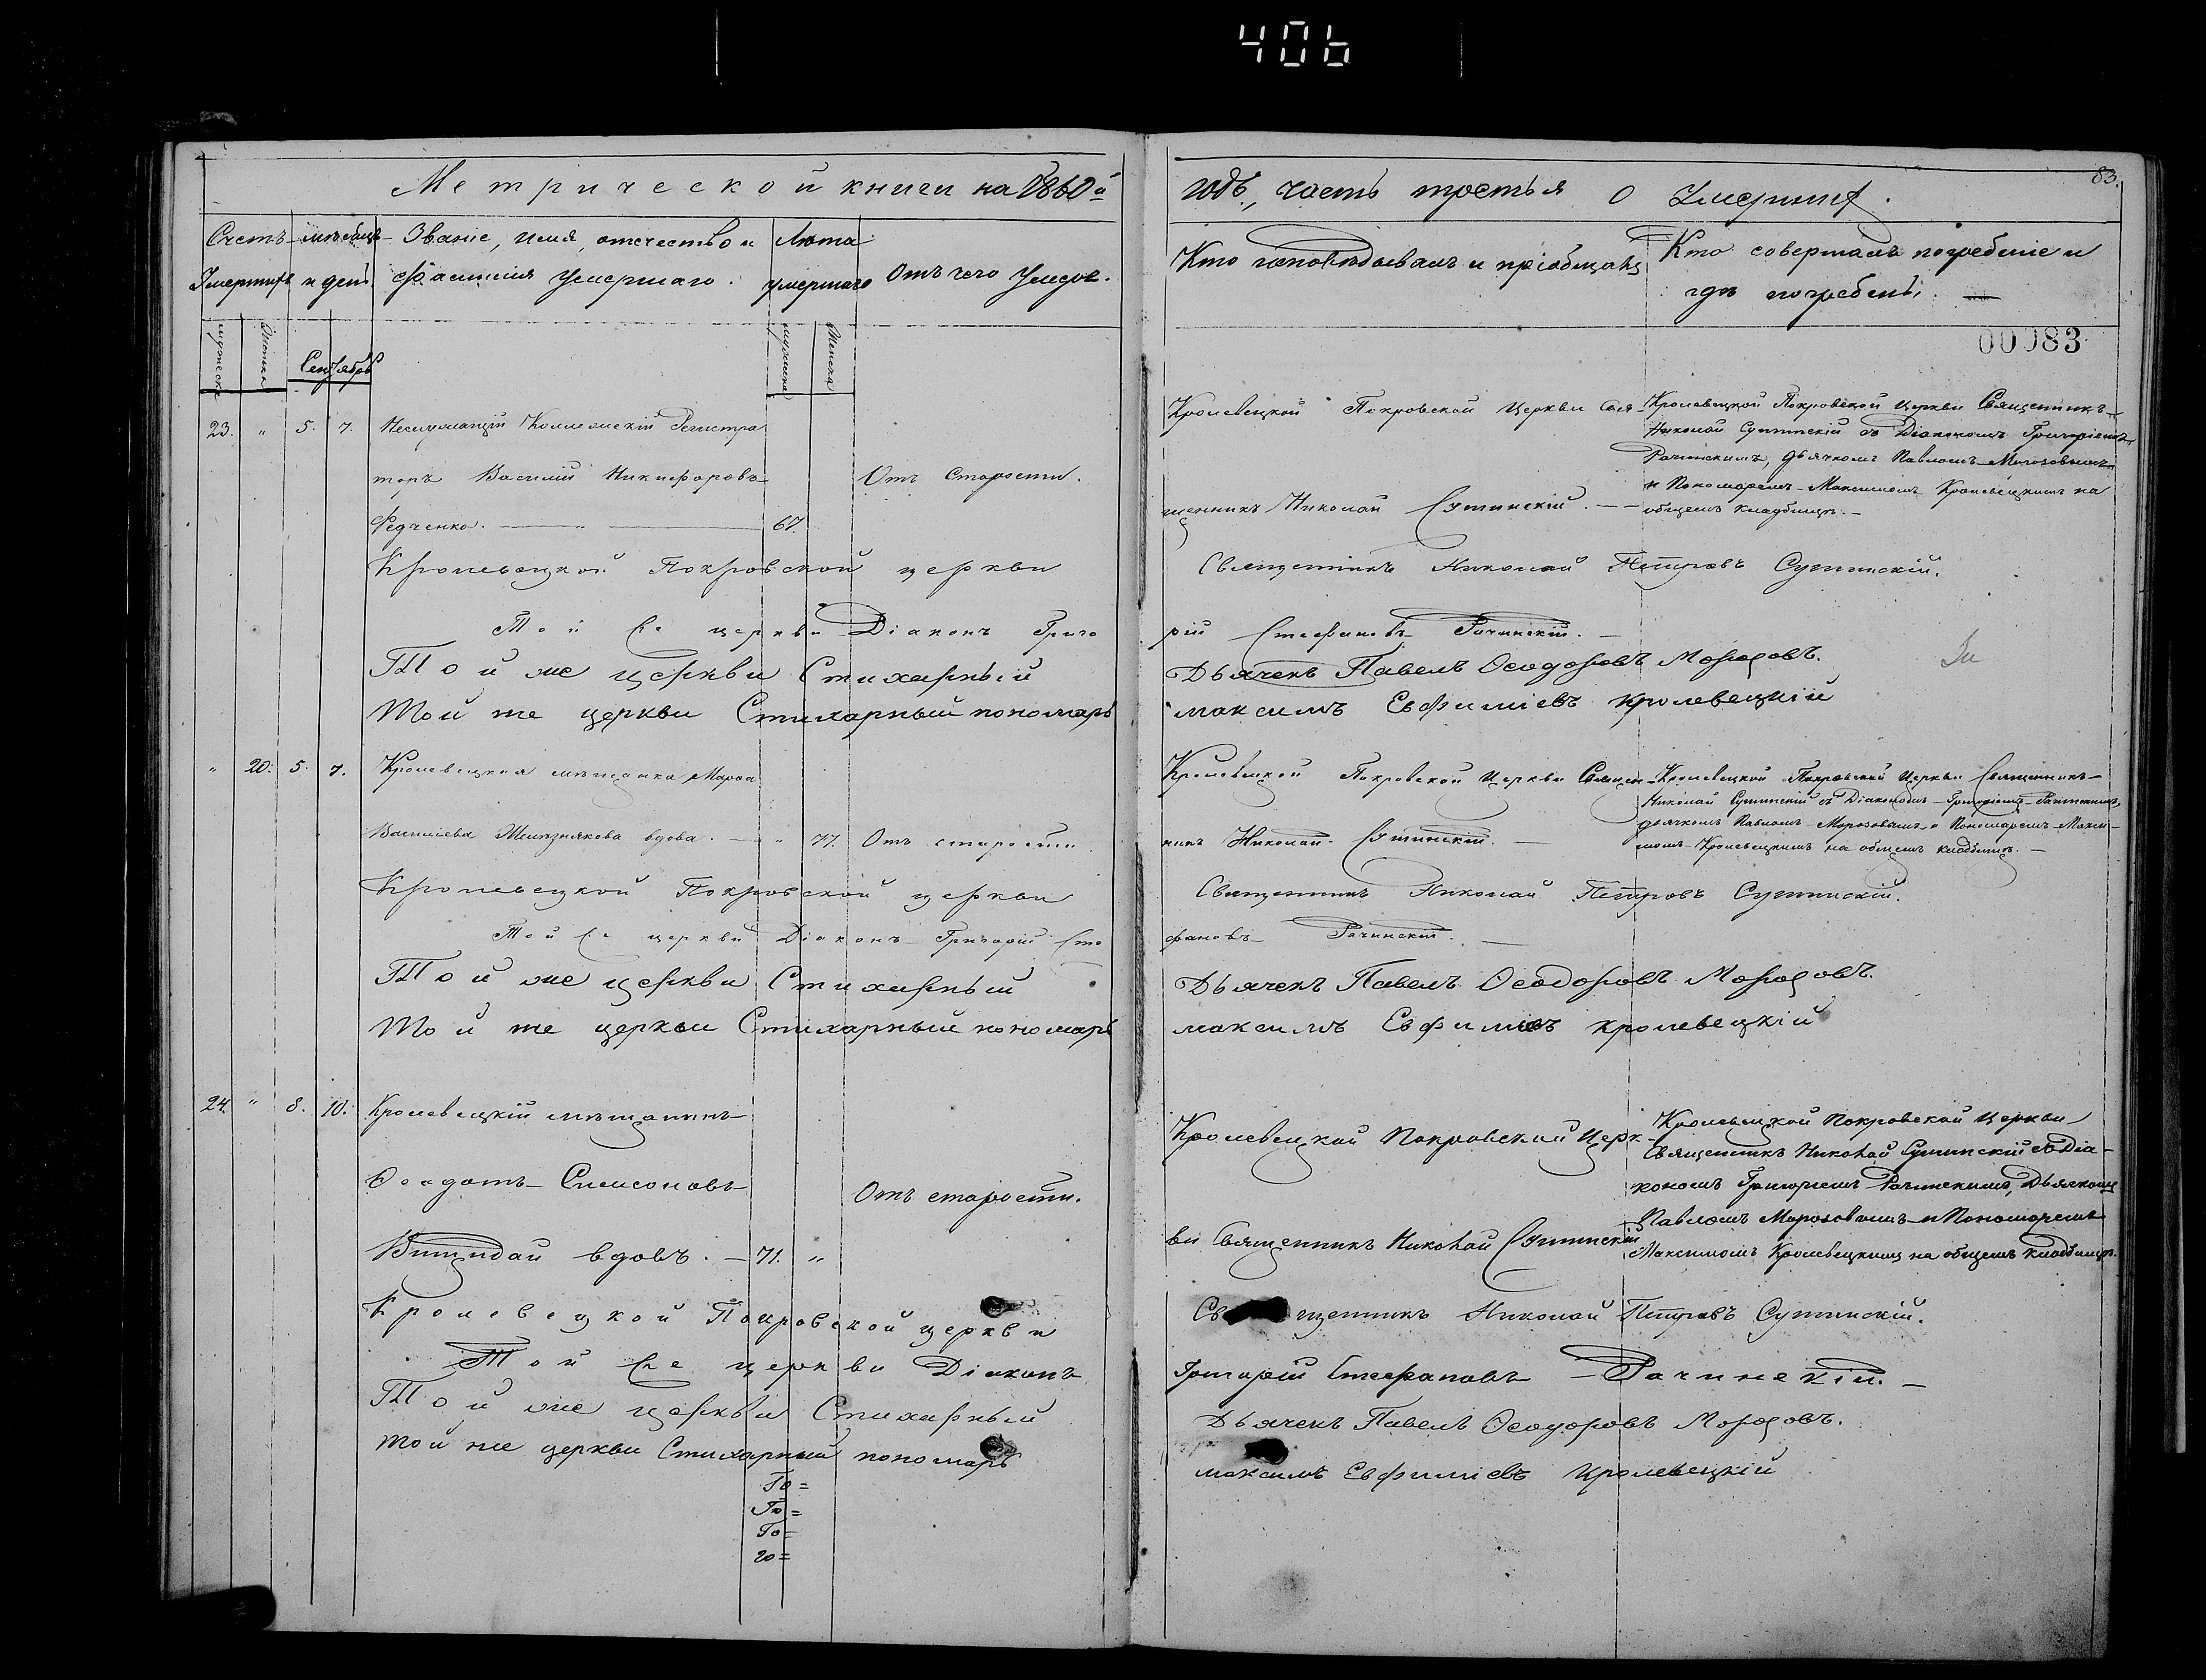 406
Метрической книги на 1860й
годъ, часть третья о Умершихъ.
83.
Счетъ Умершихъ
мѣсяцъ и день
Званіе, имя, отечество и фамилія Умершаго.
Лѣта умершаго
Отъ чего Умеръ.
Кто исповѣдывалъ и пріобщалъ
Кто совершалъ погребеніе и
гдѣ погребенъ. —
мужеска
Женска
Сентябрь
мужеска
Женска
00083
23. " 5. 7. Неслужащій Коллежскій Регистра
торъ Василій Никифоровъ
Федченко. — " — 67.
Отъ Старости.
Кролевецкой Покровской Церкви Свя-
щенникъ Николай Сушинскій. —
Кролевецкой Покровской Церкви Священникъ
Николай Сушинскій съ Діакономъ Григоріемъ
Рачинскимъ, дьячкомъ Павломъ Морозовымъ
и Пономаремъ Максимомъ Кролевецкимъ на
общемъ кладбищѣ. —
Кролевецкой Покровской церкви Священникъ Николай Петровъ Сушинскій.
Той же церкви Діаконъ Григо рій Стефановъ Рачинскій. —
Той же церкви Стихарный Дьячекъ Павелъ Ѳеодоровъ Морозовъ.
Той же церкви Стихарный пономарь максимъ Евфиміевъ кролевецкій
" 20. 5. 7. Кролевецкая мѣщанка Марѳа
Васильева Желѣзнякова вдова. — " 77. Отъ старости
Кролевецкой Покровской Церкви Священ-
никъ Николай Сушинскій. —
Кролевецкой Покровской Церкви Священникъ
Николай Сушинскій съ Діакономъ Григоріемъ Рачинскимъ,
дьячкомъ Павломъ Морозовымъ и Пономаремъ Макси-
момъ Кролевецкимъ на общемъ кладбищѣ. —
Кролевецкой Покровской церкви Священникъ Николай Петровъ Сушинскій.
Той же церкви Діаконъ Григорій Сте фановъ Рачинскій. —
Той же церкви Стихарный Дьячекъ Павелъ Ѳеодоровъ Морозовъ.
Той же церкви Стихарный пономарь максимъ Евфиміевъ кролевецкій
24. " 8. 10. Кролевецкій мѣщанинъ
Ѳеодотъ Симеоновъ
вдовъ. — 71. "
Отъ старости.
Кролевецкой Покровской Церк-
ви Священникъ Николай Сушинскій
Кролевецкой Покровской Церкви
Священникъ Николай Сушинскій съ Діа-
кономъ Григоріемъ Рачинскимъ, Дьячкомъ
Павломъ Морозовымъ и Пономаремъ
Максимомъ Кролевецкимъ на общемъ кладбищѣ.
Кролевецкой Покровской церкви Священникъ Николай Петровъ Сушинскій.
Той же церкви Діаконъ Григорій Стефановъ — Рачинскій. —
Той же церкви Стихарный Дьячекъ Павелъ Ѳеодоровъ Морозовъ.
Той же церкви Стихарный пономарь максимъ Евфиміевъ кролевецкій
Го=
Го=
Го=
го=